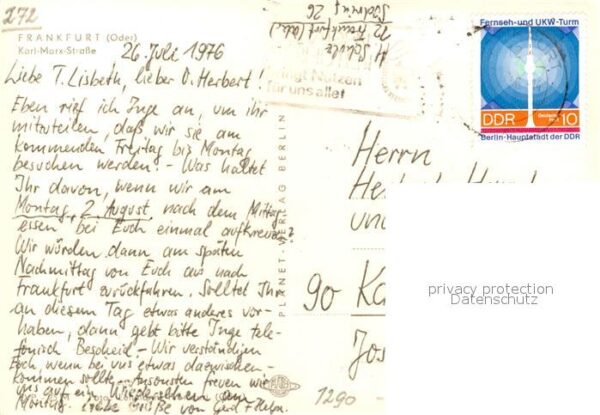 272
FRANKFURT (Oder)
Karl-Marx-Straße
26. Juli 1976
Liebe T. Lisbeth, lieber O. Herbert!
Eben rief ich Inge an, um ihr
mitzuteilen, daß wir sie am
kommenden Freitag bis Montag
besuchen werden. - Was haltet
Ihr davon, wenn wir am
Montag, 2. August, nach dem Mittag
essen bei Euch einmal aufkreuzen?
Wir würden dann am späten
Nachmittag von Euch aus nach
Frankfurt zurückfahren. Solltet Ihr
an diesem Tag etwas anderes vor-
haben, dann gebt bitte Inge tele-
fonisch Bescheid. - Wir verständigen
Euch, wenn bei uns etwas dazwischen-
kommen sollte. Ansonsten freuen wir
uns auf ein Wiedersehen am
Montag. Liebe Grüße von
PLANET-VERLAG BERLIN
H. Scholz
Frankfurt
26
Nutzen
für uns alle!
Fernseh- und UKW-Turm
DDR 10
Berlin-Hauptstadt der DDR
Herrn
und
90
1290
privacy protection
Datenschutz